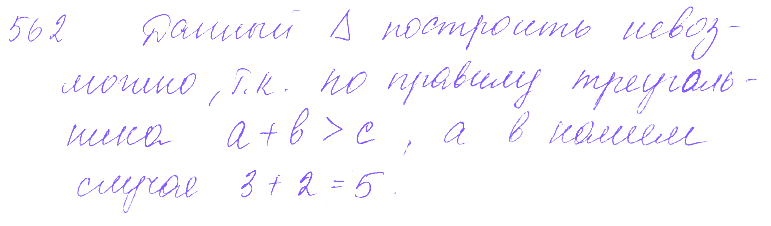 562 Данный Δ построить невоз-
можно, т.к. по правилу треуголь-
ника a + b > c, а в нашем
случае 3 + 2 = 5.